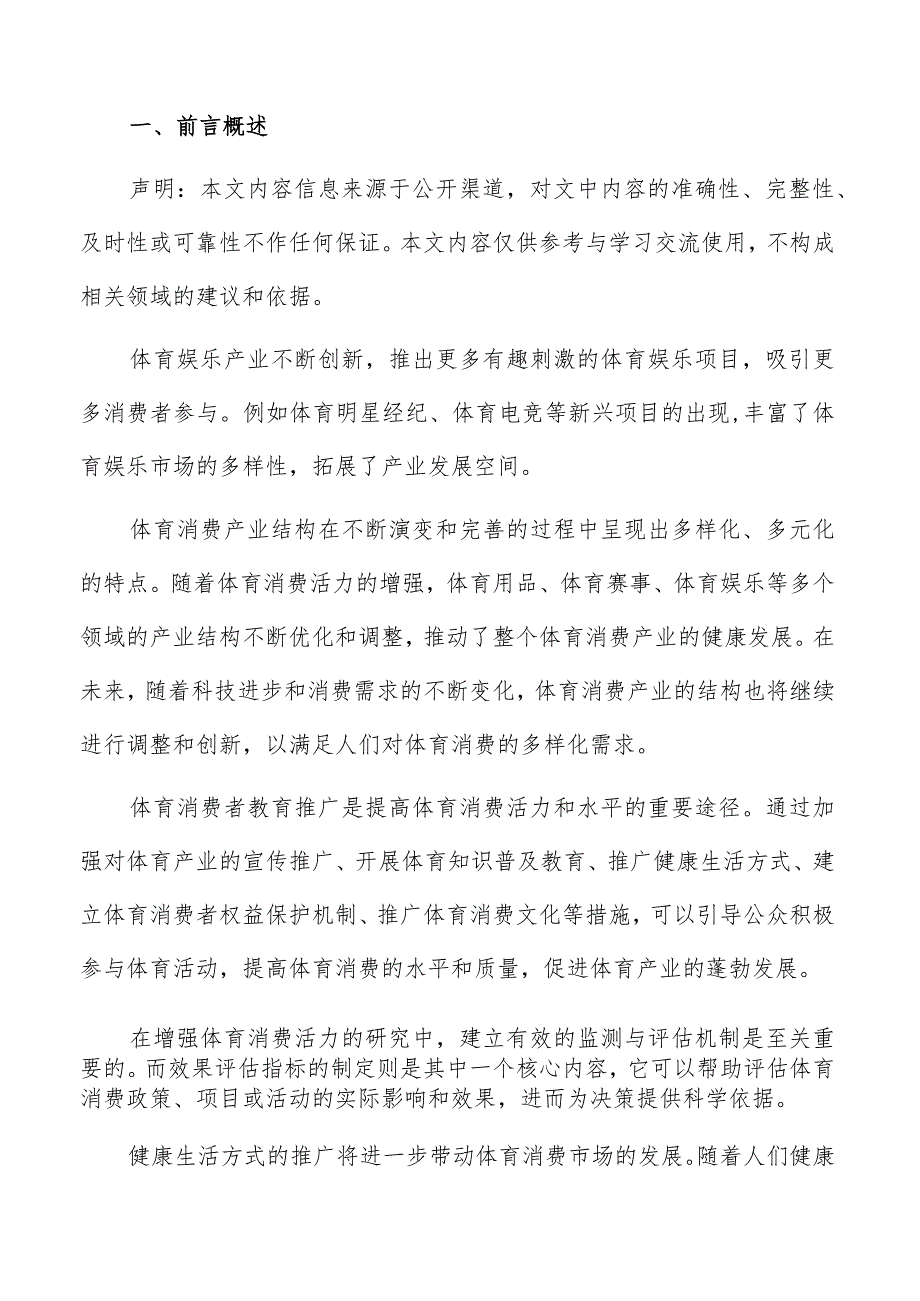 一、前言概述
声明：本文内容信息来源于公开渠道，对文中内容的准确性、完整性、
及时性或可靠性不作任何保证。本文内容仅供参考与学习交流使用，不构成
相关领域的建议和依据。
体育娱乐产业不断创新，推出更多有趣刺激的体育娱乐项目，吸引更
多消费者参与。例如体育明星经纪、体育电竞等新兴项目的出现,丰富了体
育娱乐市场的多样性，拓展了产业发展空间。
体育消费产业结构在不断演变和完善的过程中呈现出多样化、多元化
的特点。随着体育消费活力的增强，体育用品、体育赛事、体育娱乐等多个
领域的产业结构不断优化和调整，推动了整个体育消费产业的健康发展。在
未来，随着科技进步和消费需求的不断变化，体育消费产业的结构也将继续
进行调整和创新，以满足人们对体育消费的多样化需求。
体育消费者教育推广是提高体育消费活力和水平的重要途径。通过加
强对体育产业的宣传推广、开展体育知识普及教育、推广健康生活方式、建
立体育消费者权益保护机制、推广体育消费文化等措施，可以引导公众积极
参与体育活动，提高体育消费的水平和质量，促进体育产业的蓬勃发展。
在增强体育消费活力的研究中，建立有效的监测与评估机制是至关重
要的。而效果评估指标的制定则是其中一个核心内容，它可以帮助评估体育
消费政策、项目或活动的实际影响和效果，进而为决策提供科学依据。
健康生活方式的推广将进一步带动体育消费市场的发展。随着人们健康